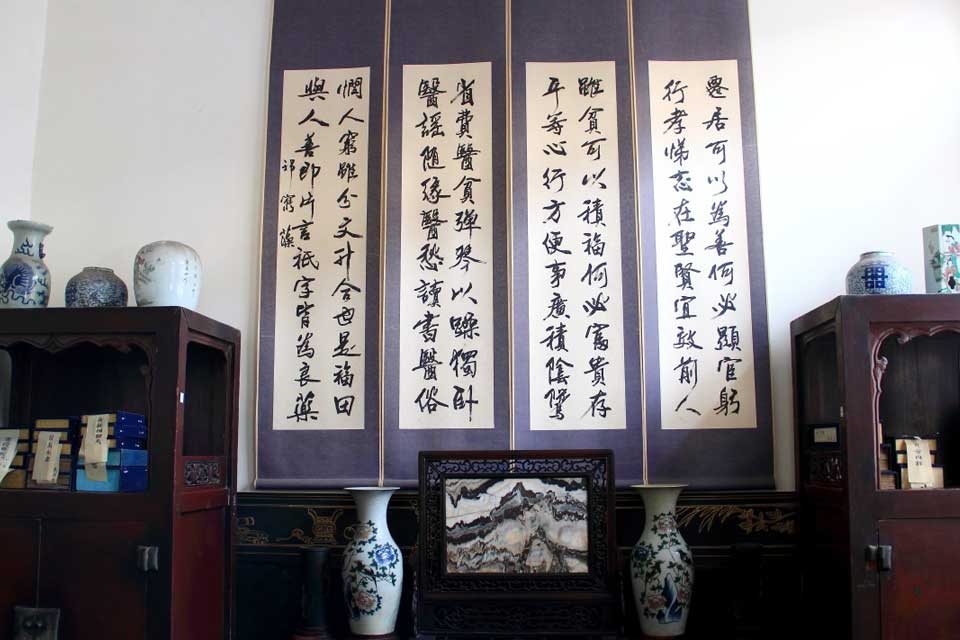 居可以為善何必顯官躬
行孝悌志在聖賢宜效前人
雖貧可以積福何必富貴存
平等心行方便事廣積陰騭
省費醫貧彈琴以躁獨臥
醫謡隨緣醫愁讀書醫俗
憫人窮雖分文升合也是福田
與人善即片言祇字皆為良藥
祁寯藻